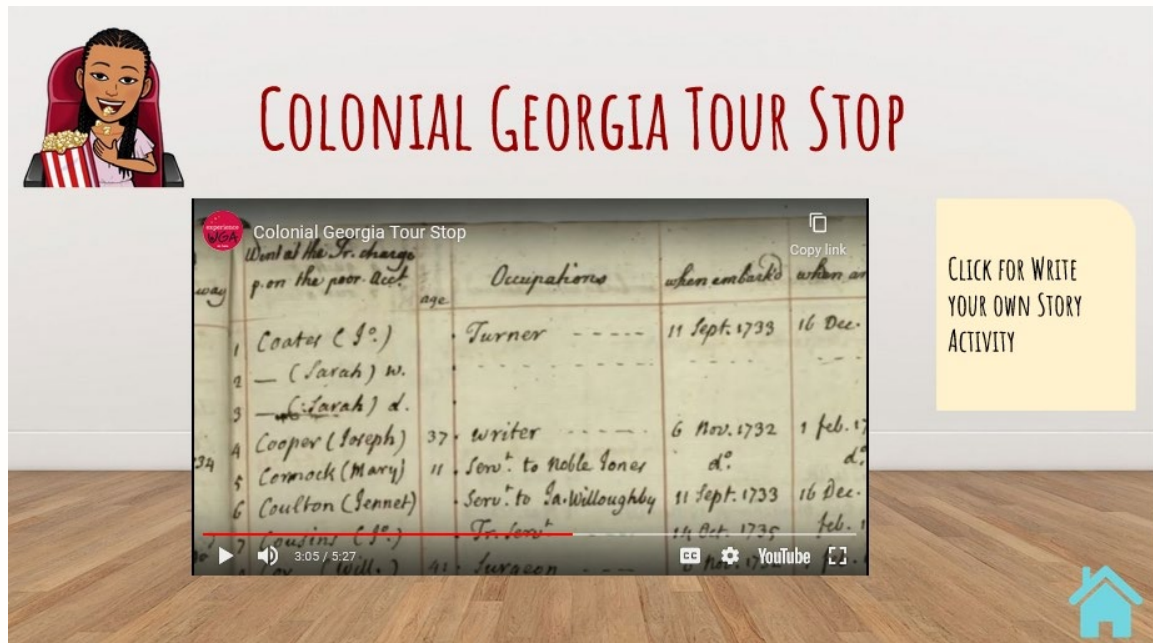 COLONIAL GEORGIA TOUR STOP
experience
WGA
Colonial Georgia Tour Stop
Copy link
Went at the Tr. charge
p. on the poor Acct.
way
age
Occupations
when embark'd
when ar
1 Coates (Jo.) Turner 11 Sept. 1733 16 Dec.
2 — (Sarah) w.
3 — (Sarah) d.
4 Cooper (Joseph) 37 writer 6 Nov. 1732 1 feb. 17
34
5 Cormock (Mary) 11 Servt. to Noble Jones do. do.
6 Coulton (Jennet) Servt. to Ja. Willoughby 11 Sept. 1733 16 Dec.
7 Cousins (Jo.) Tr. Servt. 14 Oct. 1735 feb. 1
Cox (Will.) 41 Surgeon 6 Nov. 1732
3:05 / 5:27
CC
YouTube
CLICK FOR WRITE
YOUR OWN STORY
ACTIVITY